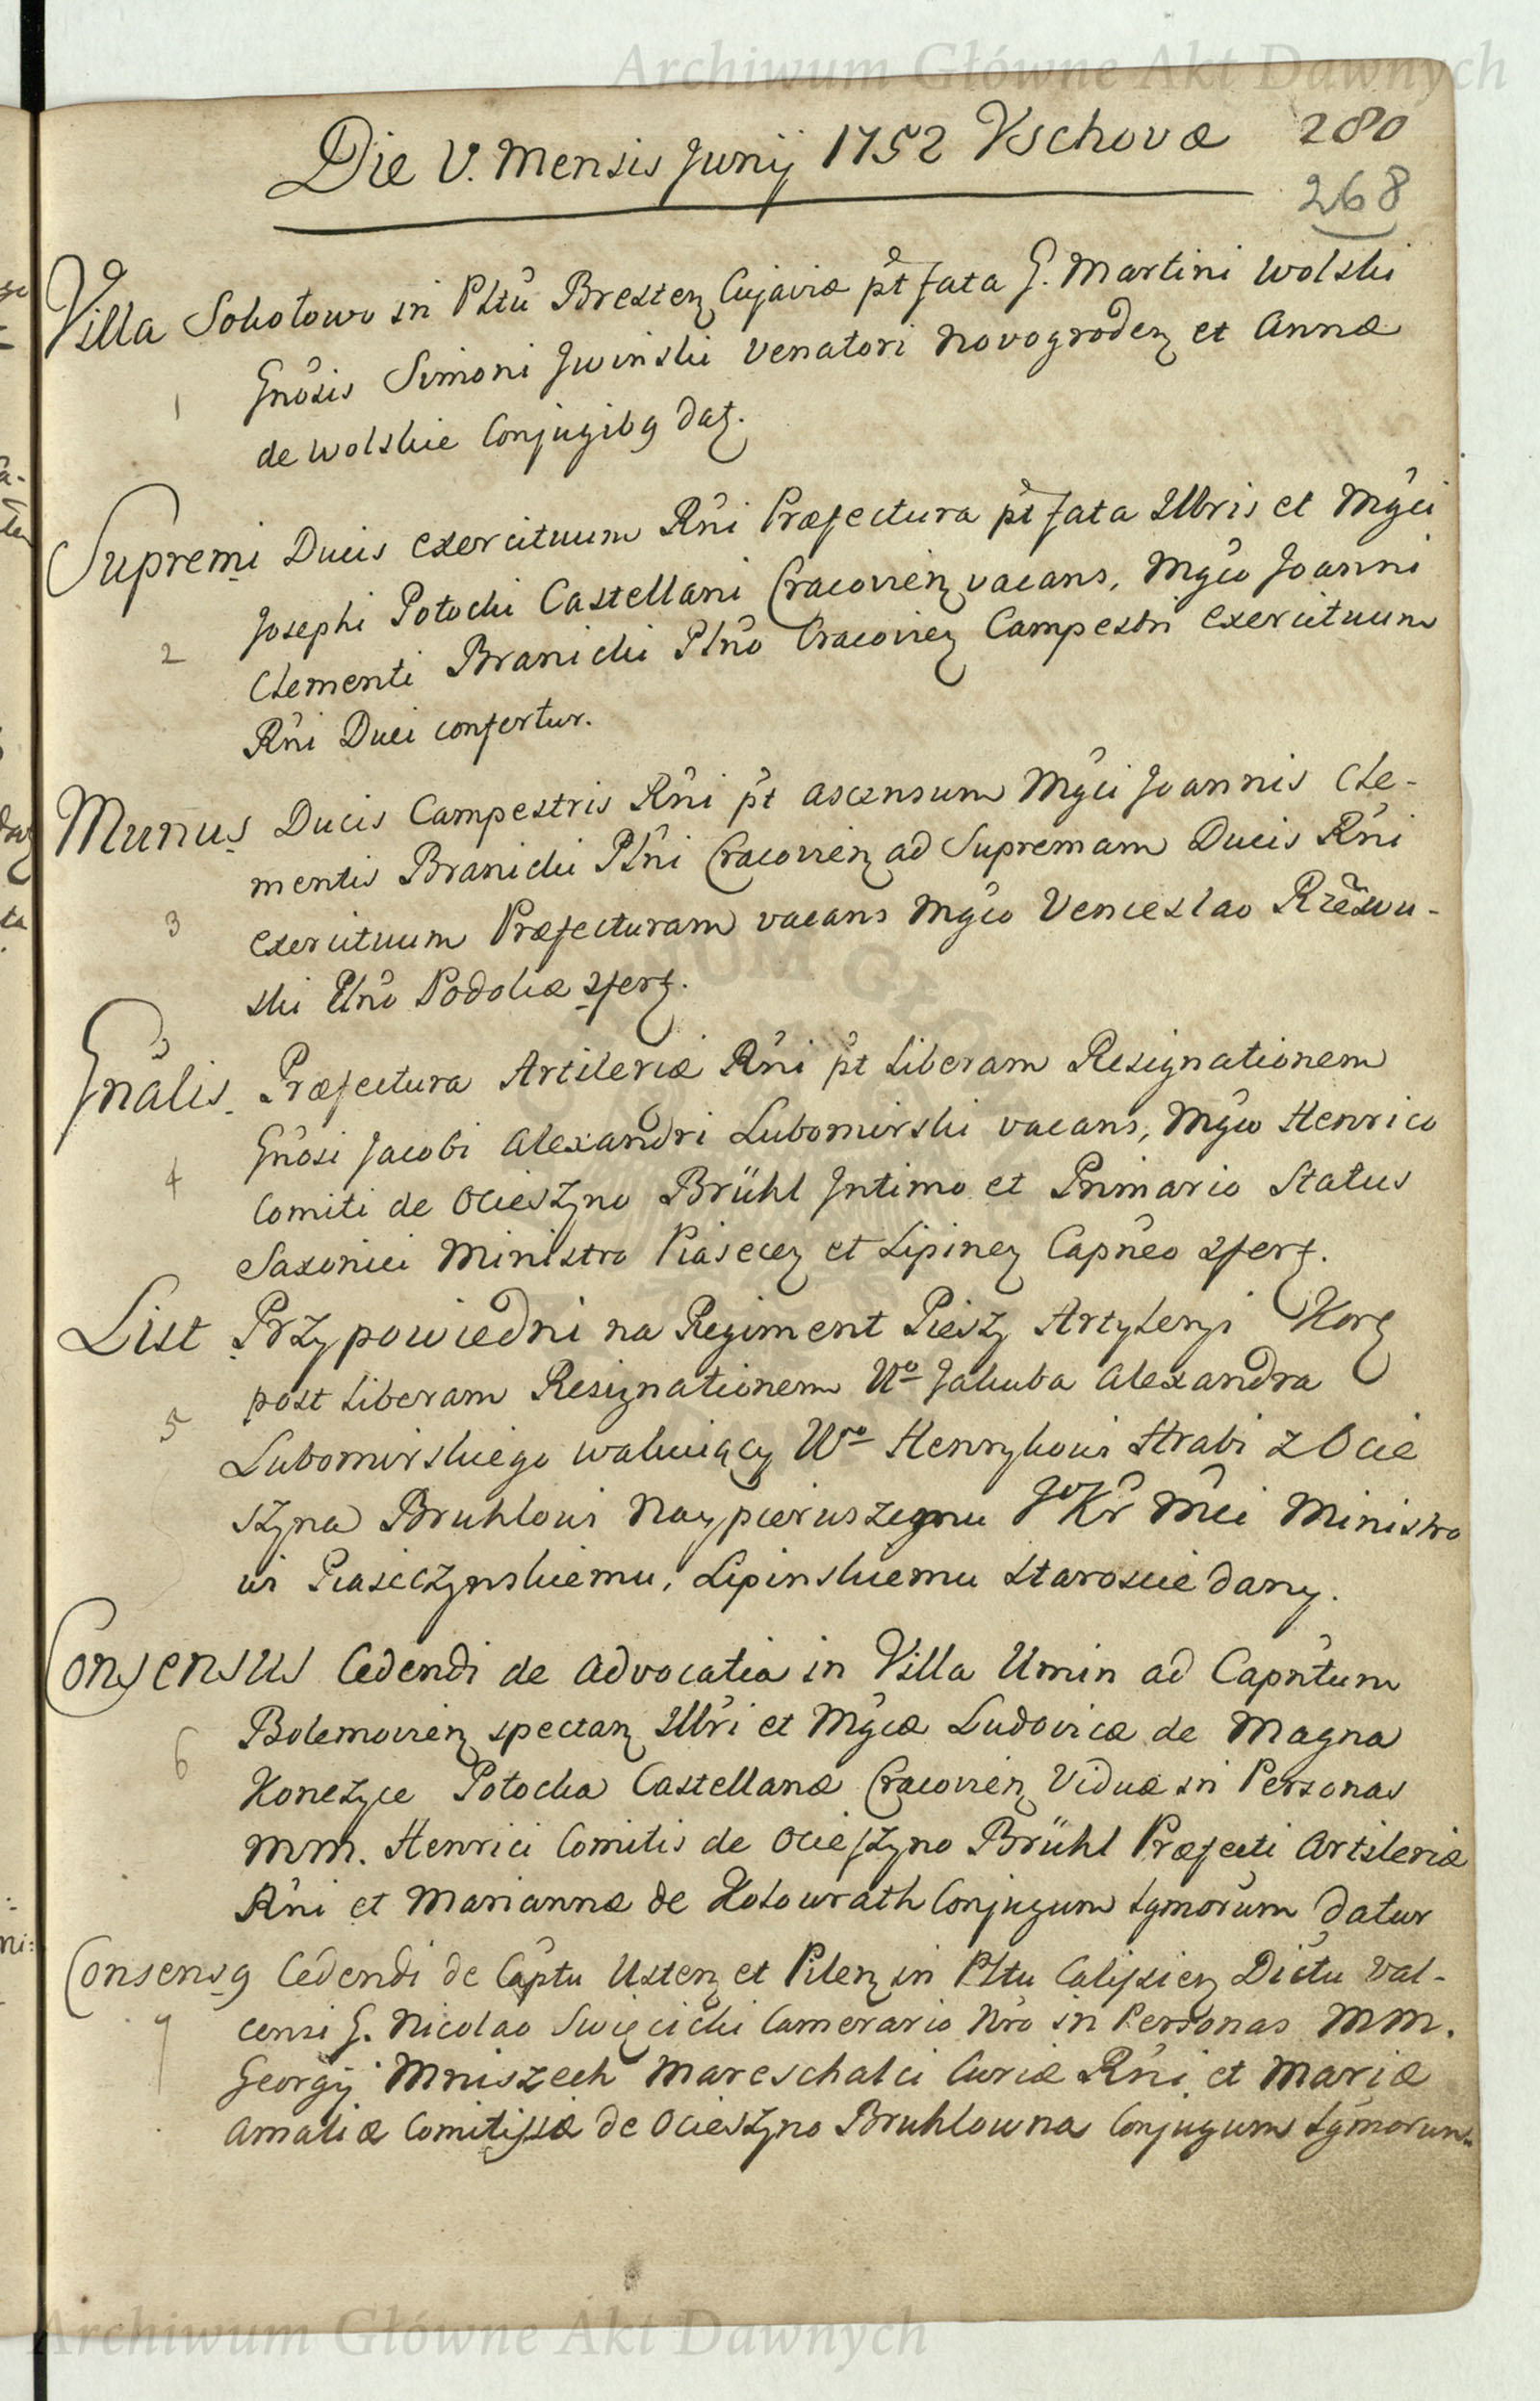 Archiwum Główne Akt Dawnych
Die V. Mensis Junij 1752 Vschovæ 280
268
Villa Sokołowo in Pltu Bresten Cujaviæ pt fata G. Martini Wolski
1 Gnosis Simoni Jwinski Venatori Novogroden et Annæ
de Wolskie Conjugibq datz.
Supremi Ducis exercituum Rni Præfectura pt fata Illbris et Mgci
Josephi Potocki Castellani Cracovien vacans, Mgco Joanni
2 Clementi Branicki Plno Cracovien Campestri exercituum
Rni Duci confertur.
Munus Ducis Campestris Rni pt ascensum Mgci Joannis Cle-
mentis Branicki Plni Cracovien ad Supremam Ducis Rni
3 exercituum Præfecturam vacans Mgco Venceslao Rzewu-
ski Plno Podoliæ 2fertz.
Gnalis Præfectura Artileriæ Rni pt liberam Resignationem
Gnosi Jacobi Alexandri Lubomirski vacans, Mgco Henrico
4 Comiti de Ocieszyno Brühl Jntimo et Primario Status
Saxonici Ministro Piasecen et Lipinen Capneo 2fertz.
List Przypowiedni na Regiment Pieszy Artyleryi Kor
post liberam Resignationem Uo Jakuba Alexandra
5 Lubomirskiego wakuiący Wo Henrykowi Hrabi z Ocie
szyna Bruhlowi Naypierwszemu JKr Mci Ministro
wi Piaseczynskiemu, Lipinskiemu Staroscie dany.
Consensus Cedendi de Advocatia in Villa Umin ad Capntum
Bolemovien spectan Illbri et Mgcæ Ludovicæ de Magna
6 Konczyce Potocka Castellanæ Cracovien Viduæ in Personas
MM. Henrici Comitis de Ocieszyno Brühl Præfecti Artileriæ
Rni et Mariannæ de Kolowrath Conjugum lgmorum datur
Consensq Cedendi de Captu Usten et Pilen in Pltu Calisien Dictu Val-
7 censi G. Nicolao Swięcicki Camerario Nro in Personas MM.
Georgij Mniszech Mareschalci Curiæ Rni et Mariæ
Amaliæ Comitissæ de Ocieszyno Bruhlowna Conjugum lgmorum.
Archiwum Główne Akt Dawnych